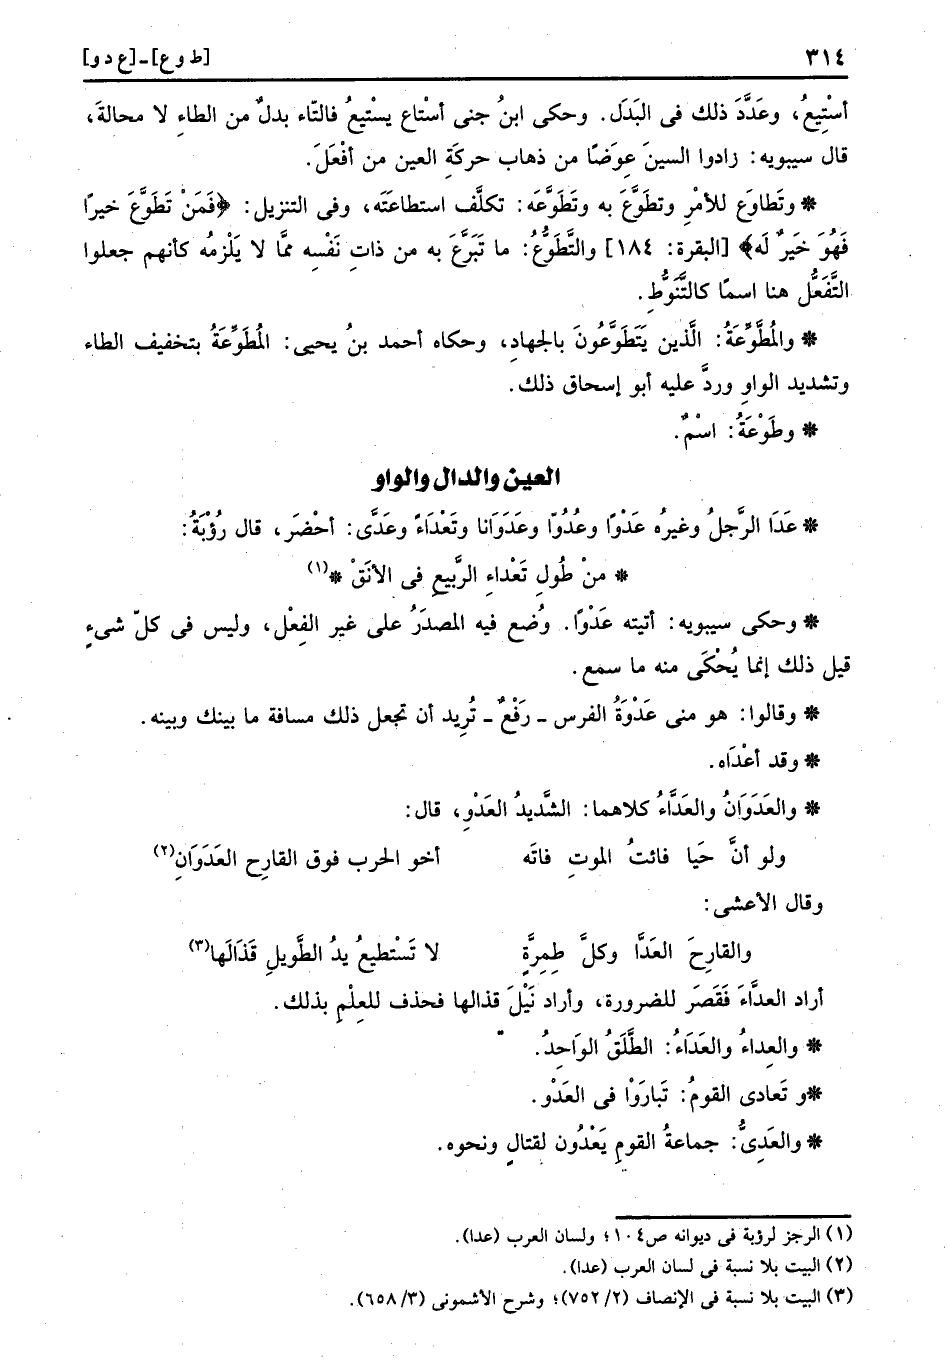 ٣١٤ [ط و ع]ـ[ع د و]
أسْتِيعُ، وعَدَّدَ ذلك فى البَدَل. وحكى ابنُ جنى أسْتاع يسْتِيعُ فالتّاء بدلٌ من الطاءِ لا محالةَ،
قال سيبويه: زادوا السينَ عِوَضًا من ذهاب حركَةِ العين من أفْعَلَ.
* وتَطاوَع للأمْرِ وتطَوَّعَ به وتَطَوَّعَه: تكلَّف استطاعَتَه، وفى التنزيل: ﴿فَمَنْ تَطَوَّعَ خيرًا
فَهُوَ خَيرٌ لَه﴾ [البقرة: ١٨٤] والتَّطَوُّعُ: ما تَبَرَّعَ به من ذاتِ نَفْسِه ممَّا لا يَلْزمُه كأنهم جعلوا
التَّفَعُّل هنا اسمًا كالتَّنَوُّطِ.
* والمُطَّوِّعَةُ: الَّذين يَتَطَوَّعُونَ بالجهادِ، وحكاه أحمد بنُ يحيى: المُطَوِّعَةُ بتخفيف الطاء
وتشديد الواوِ وردَّ عليه أبو إسحاق ذلك.
* وطَوْعَةُ: اسْمٌ.
العين والدال والواو
* عَدَا الرَّجلُ وغيرُه عَدْوًا وعُدُوّا وعَدَوَانا وتَعْدَاءً وعَدَّى: أحْضرَ، قال رُؤْبَةُ:
* منْ طُولِ تَعْداءِ الرَّبيعِ فى الأنَقْ *(١)
* وحكى سيبويه: أتيته عَدْوًا. وُضع فيه المصدَرُ على غير الفِعْل، وليس فى كلّ شىءٍ
قيل ذلك إنما يُحْكَى منه ما سمع.
* وقالوا: هو منى عَدْوَةُ الفرس ـ رَفْعٌ ـ تُرِيد أن تجعل ذلك مسافة ما بينك وبينه.
* وقد أعْدَاه.
* والعَدَوَانُ والعَدَّاءُ كلاهما: الشَّديدُ العَدْوِ، قال:
ولو أنَّ حَيا فائتُ الموتِ فاتَه أخو الحرب فوق القارِحِ العَدَوَانِ(٢)
وقال الأعشى:
والقارِحَ العَدَّا وكلَّ طِمِرَّةٍ لا تَسْتطيعُ يدُ الطَّويلِ قَذَالَها(٣)
أراد العدَّاءَ فَقَصَر للضرورة، وأراد نَيْلَ قذالها فحذف للعِلْمِ بذلك.
* والعِداءُ والعَدَاءُ: الطَّلَقُ الوَاحِدُ.
*و تَعادى القومُ: تَبارَوْا فى العَدْوِ.
* والعَدِىُّ: جماعةُ القومِ يَعْدُون لقتالٍ ونحوه.
(١) الرجز لرؤبة فى ديوانه ص١٠٤؛ ولسان العرب (عدا).
(٢) البيت بلا نسبة فى لسان العرب (عدا).
(٣) البيت بلا نسبة فى الإنصاف (٢/ ٧٥٢)؛ وشرح الأشمونى (٣/ ٦٥٨).